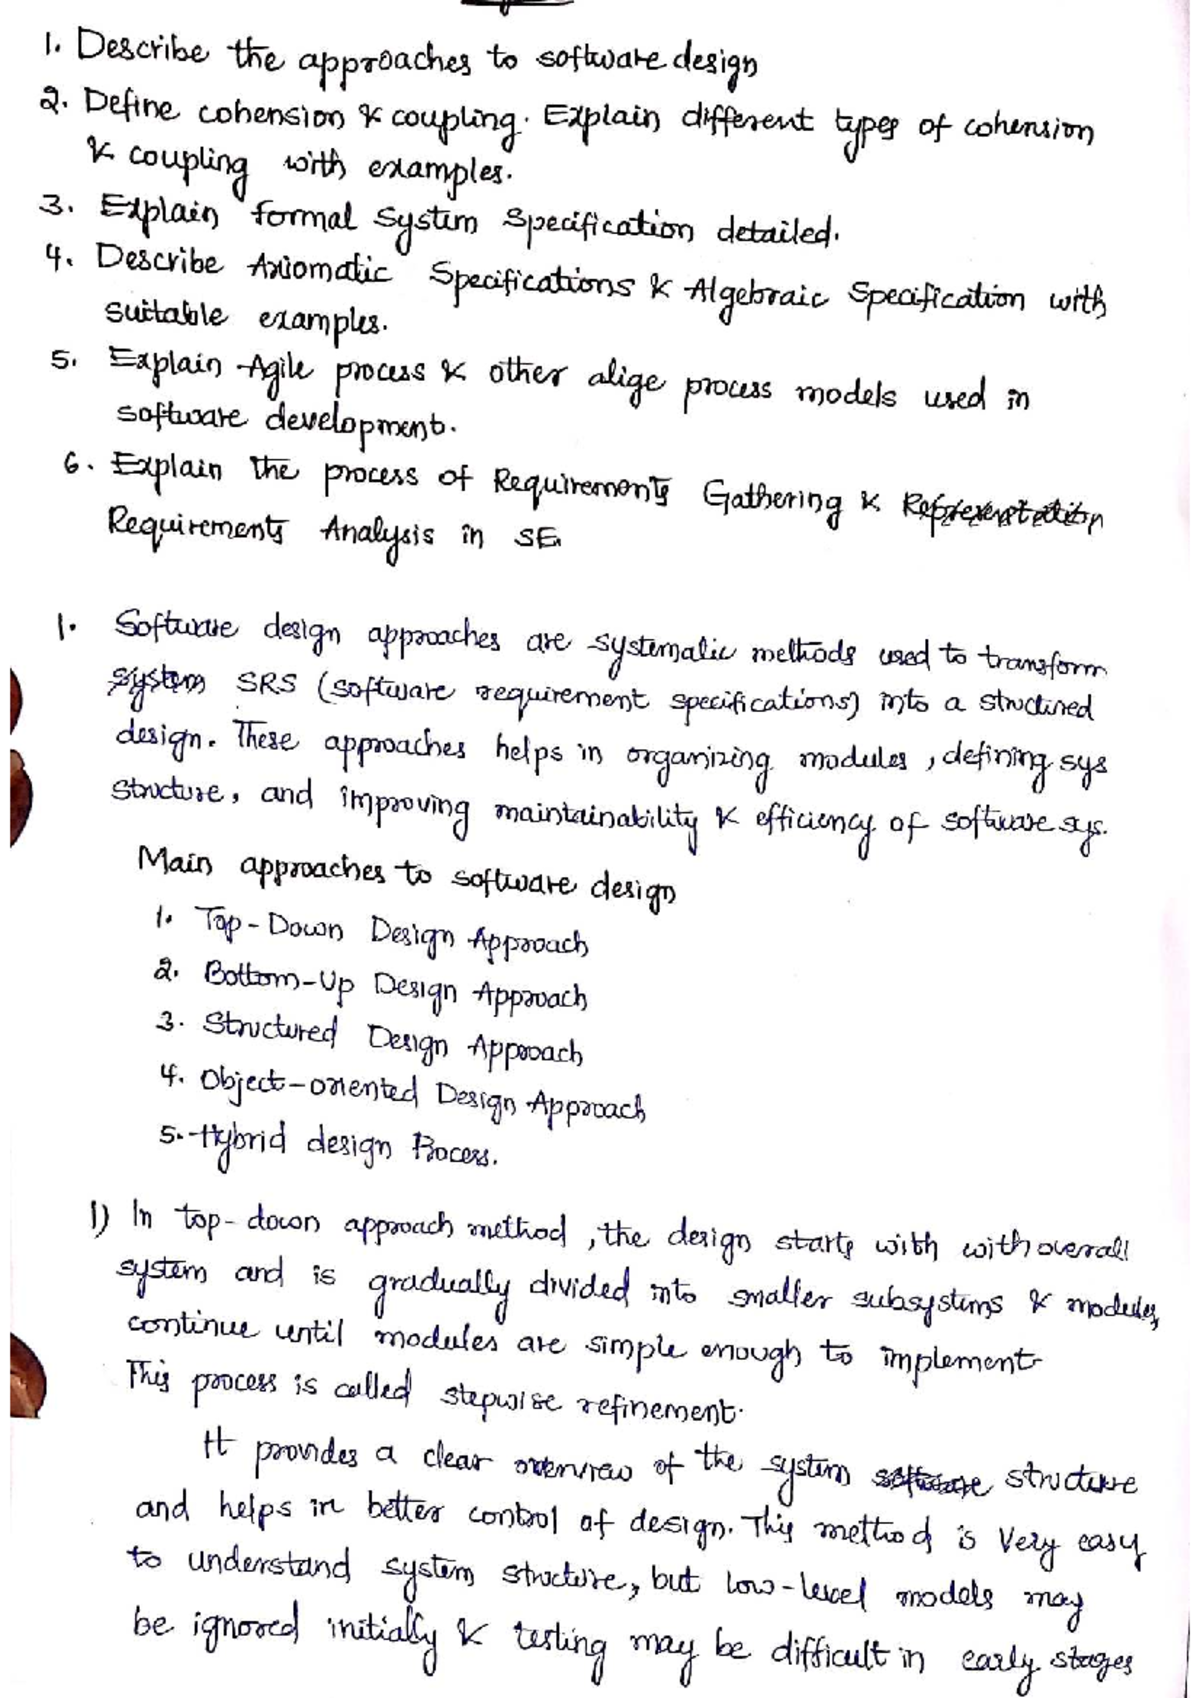 1. Describe the approaches to software design
2. Define cohension & coupling. Explain different types of cohension
& coupling with examples.
3. Explain formal system Specification detailed.
4. Describe Axiomatic Specifications & Algebraic Specification with
suitable examples.
5. Explain Agile process & other alige process models used in
software development.
6. Explain the process of Requirements Gathering & Representation
Requirements Analysis in SE
1. Software design approaches are systematic methods used to transform
system SRS (software requirement specifications) into a structured
design. These approaches helps in organizing modules, defining sys
structure, and improving maintainability & efficiency of software sys.
Main approaches to software design
1. Top-Down Design Approach
2. Bottom-Up Design Approach
3. Structured Design Approach
4. Object-oriented Design Approach
5. Hybrid design Process.
1) In top-down approach method, the design starts with with overall
system and is gradually divided into smaller subsystems & modules,
continue until modules are simple enough to implement
This process is called stepwise refinement.
It provides a clear overview of the system software structure
and helps in better control of design. This method is very easy
to understand system structure, but low-level models may
be ignored initially & testing may be difficult in early stages